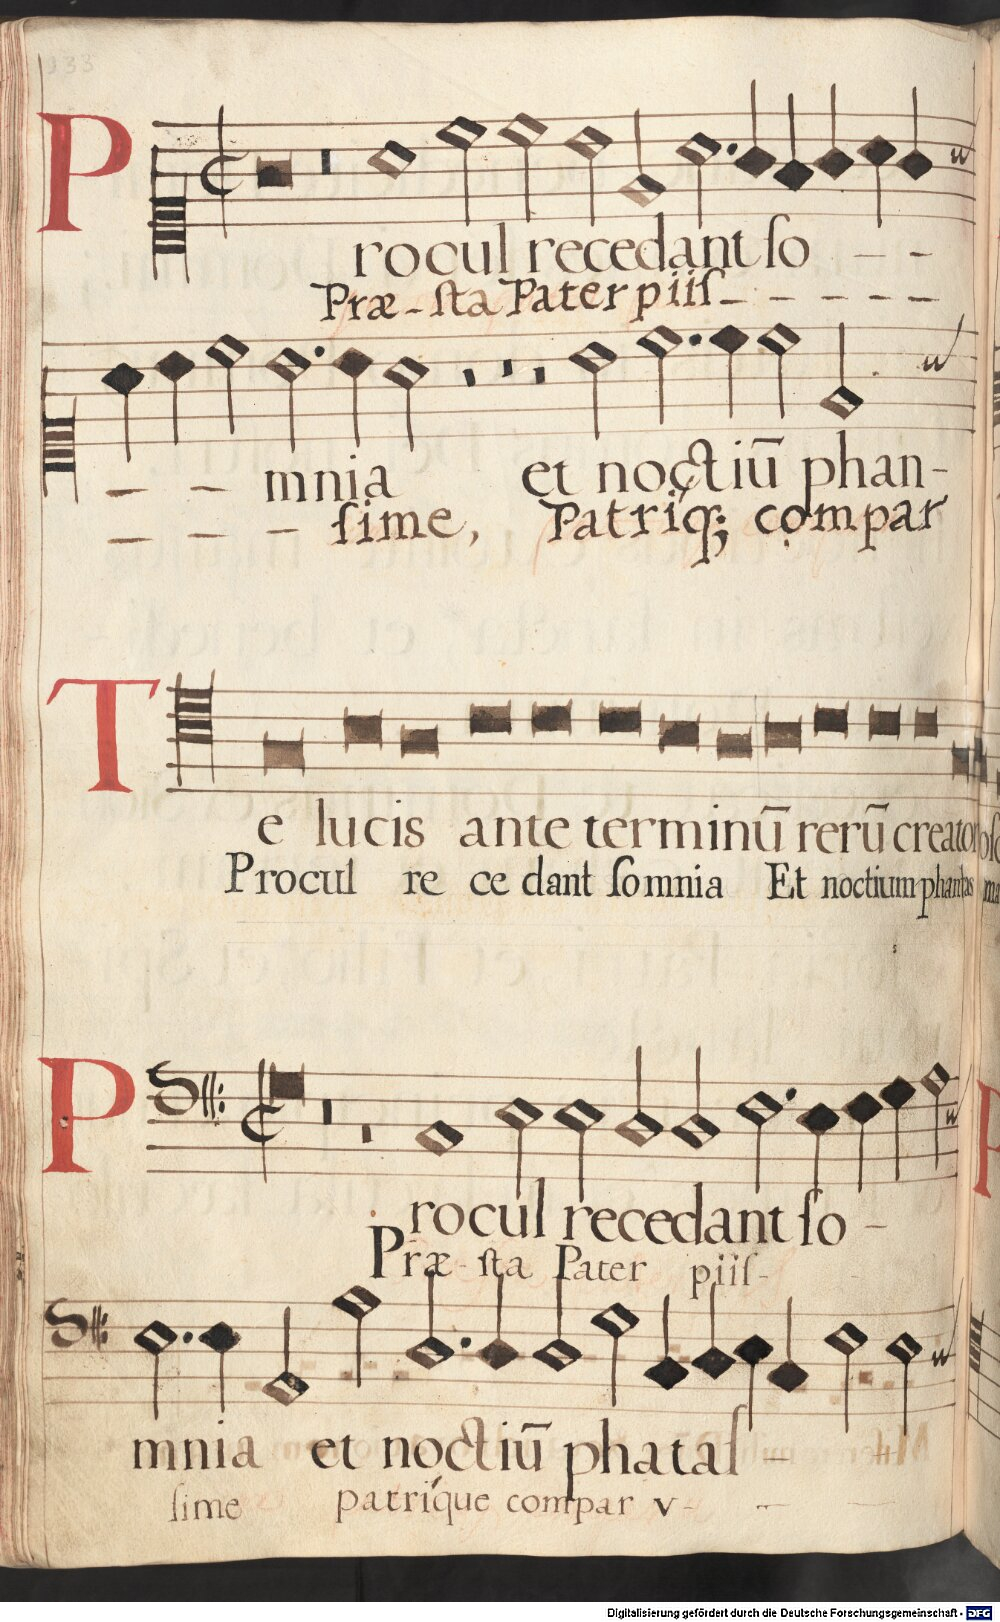 133
Procul recedant ſo - -
Præ-ſta Pater piiſ- - - - - -
- - mnia et noctiū phan-
- - - ſime, Patríq; compar
Te lucis ante terminū rerū creator
Procul re ce dant ſomnia Et noctium phantas ma
Procul recedant ſo -
Præ-ſta Pater piiſ-
mnia et noctiū phataſ -
ſime patríque compar v- - -
Digitalisierung gefördert durch die Deutsche Forschungsgemeinschaft - DFG